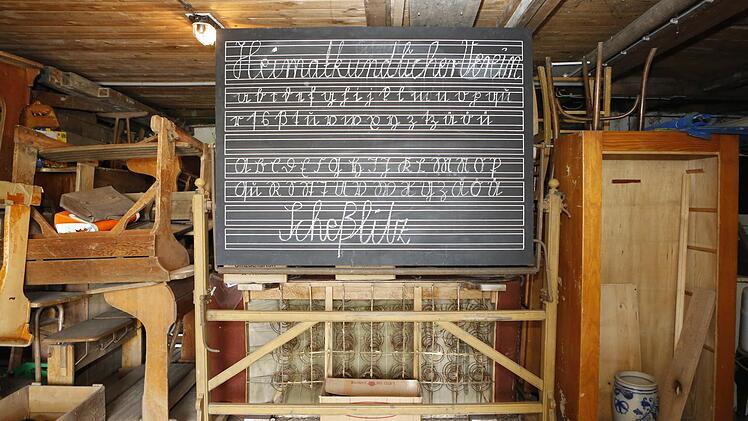 Heimatkundlicher Verein
a b c d e f g h i j k l m n o p q ü
r s ß t u v w x y z tz ä ö ü
A B C D E F G H I J K L M N O P
Qu R S St T U V W X Y Z Ä Ö Ü
Scheßlitz